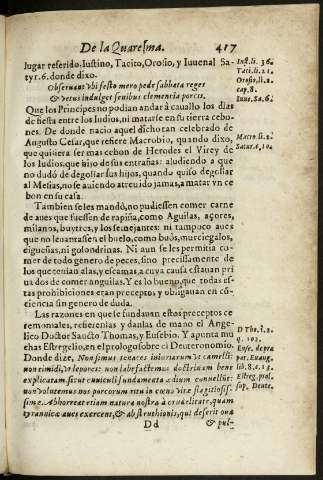 De la Quaresma. 417
lugar referido. Iustino, Tacito, Orosio, y Iuuenal Sa-
tyr. 6. donde dixo.
Obseruant vbi festo mero pede sabbata reges
& vetus indulget senibus clemencia porcis.
Que los Principes no podian andar à cauallo los dias
de fiesta entre los Iudios, ni matarse en su tierra cebo-
nes. De donde nacio aquel dicho tan celebrado de
Augusto Cesar, que refiere Macrobio, quando dixo,
que quisiera ser mas cebon de Herodes el Virey de
los Iudios, que hijo de sus entrañas: aludiendo a que
no dudó de degollar sus hijos, quando quiso degollar
al Mesias, no se auiendo atreuido jamas, a matar vn ce
bon en su casa.
Tambien se les mandò, no pudiessen comer carne
de aues que fuessen de rapiña, como Aguilas, açores,
milanos, buytres, y los semejantes: ni tampoco aues
que no leuantassen el buelo, como buòs, murciegalos,
cigueñas, ni golondrinas. Ni aun se les permitia co-
mer de todo genero de peces, sino precissamente de
los que tenian alas, y escamas, a cuya causa estauan pri
uados de comer anguilas. Y es lo bueno, que todas es-
tas prohibiciones eran preceptos, y obligauan en cõ-
ciencia sin genero de duda.
Las razones en que se fundauan estos preceptos ce
remoniales, refierenlas y danlas de mano el Ange-
lico Doctor Sancto Thomas, y Eusebio. Y apunta mu
chas Estregelio, en el prologo sobre el Deuteronomio.
Donde dize, Non simus tenaces iniuriarum vt camelli:
non timidi, vt lepores: non labefactemus doctrinam bene
explicatam. sicut cuniculi fundamenta ædium conuellũt:
non volutemus nos porcorum ritu in cœno vitæ flagitiosis-
simæ. Abhorreat etiam natura nostra à crudelitate, quam
tyrannicæ aues exercent, & ab struthionis, qui deserit oua
Dd & pul-
Inst. li. 36.
Taci. li. 21.
Orosio, li. 2.
cap. 8.
Iuue, Sa. 6.
Macro. li. 2.
D Tho. 1. 2.
q. 102.
Euse. de præ
par. Euang.
lib. 8. c. 13.
Estreg. prol.
sup. Deute.